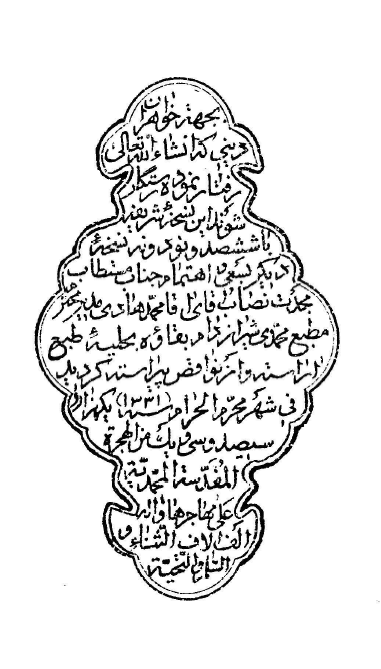 بجهة خواهران
دینی که انشاء الله تعالی
رفتار نموده رستگار
شوند این نسخهٔ شریفه
با ششصد و نود و نه نسخهٔ
دیگر بسعی و اهتمام جناب مستطاب
محمدت نصاب آقای اقا محمد هادی مدیر محترم
مطبع محمدی شیراز دام بقاؤه بحلیهٔ طبع
اراسته و از نواقص پیراسته گردید
فی شهر محرم الحرام سنه (۱۳۳۱) یکهزار و
سیصد و سی و یک من الهجرة
المقدسة المحمدیة
علی مهاجرها و اله
الف الاف الثناء و
السلام و التحیة